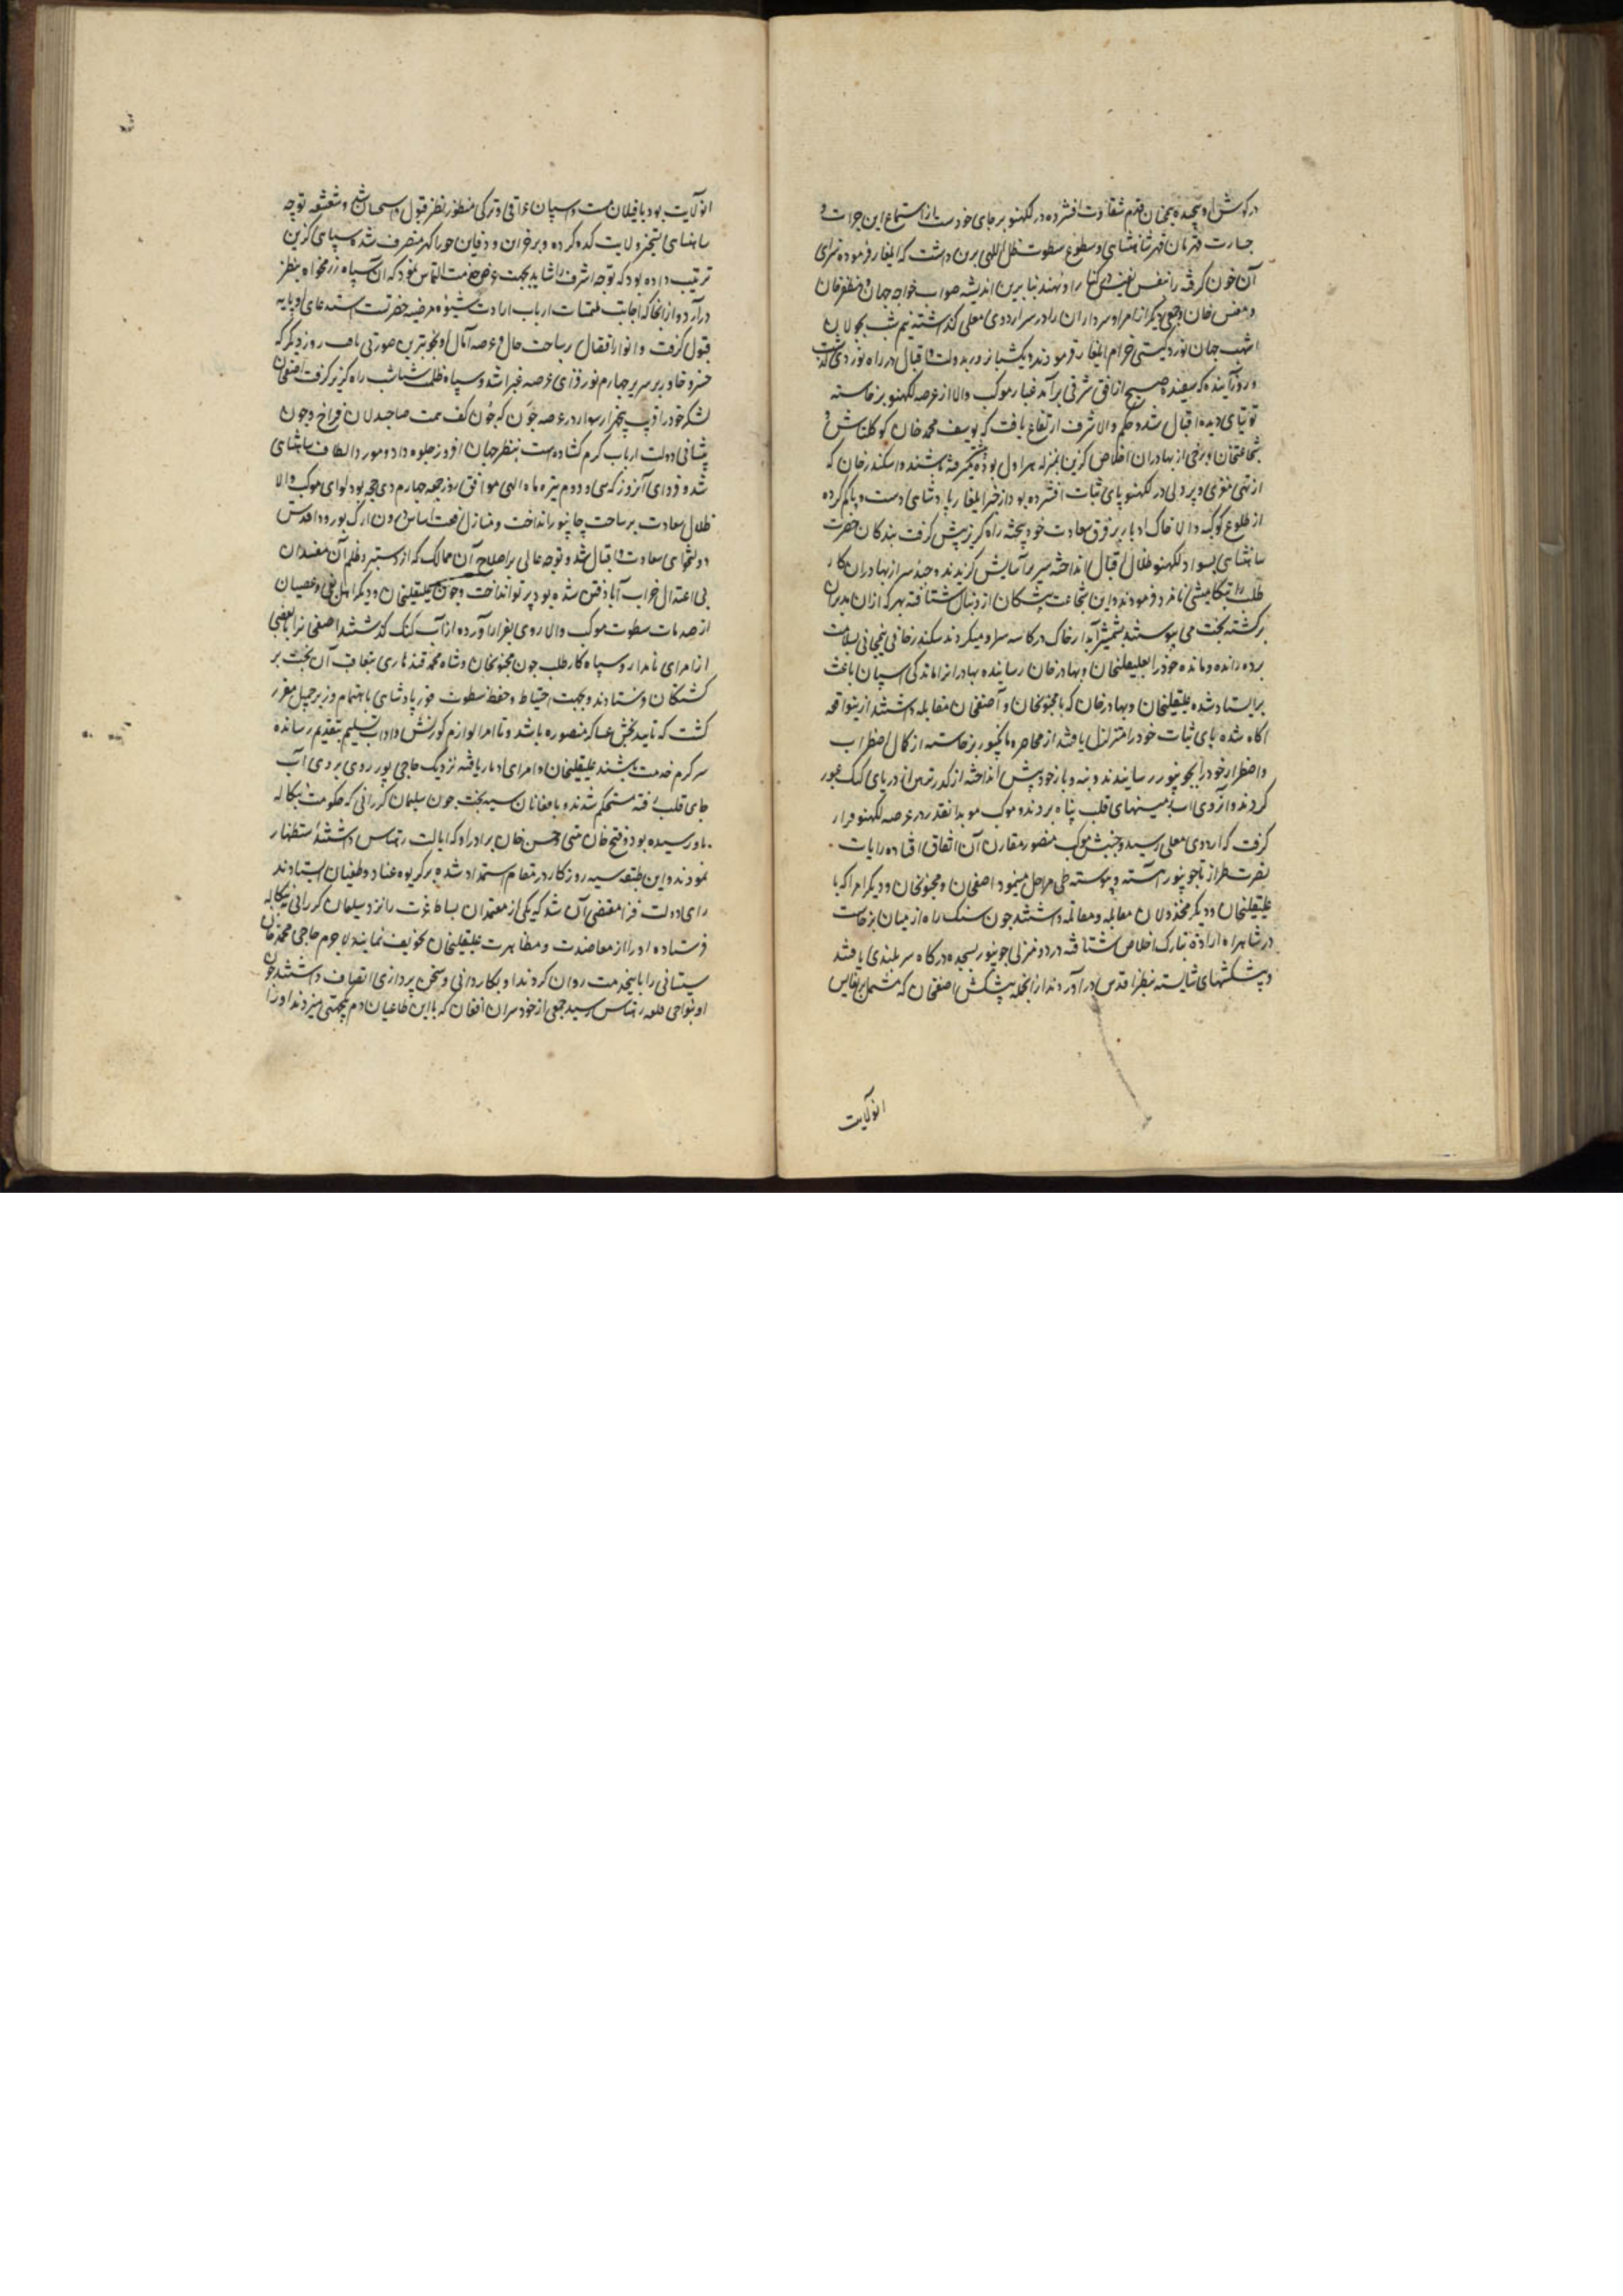 در کوش او پیچیده همچنان قدم شقاوت افشرده در لکهنو بر جای خودست از استماع این جرات و
جسارت قهرمان قهر شاهنشاهی و سطوع سطوت ظل اللهی برن داشت که ایلغار فرموده سزای
آن خون کرفته را بنفس نفیس در کنار او نهند بنابرین اندیشه صواب خواجه جهان و مظفرخان
و معین خان و جمعی دیکر از امرا و سرداران را در سر اردوی معلی کذاشته نیم شب بجولان
اشهب جهان نورد کیتی خرام ایلغار فرمودند و یکشبانروز بدولت و اقبال در راه نوردی کذشت
و روز آینده که سفیده صبح از افق شرقی برآمد غبار موکب والا از عرصه لکهنو برخاسته
توتیای دیده اقبال شد و حکم والا شرف ارتفاع یافت که یوسف محمد خان کوکلتاش و
شجاعتخان و برخی از بهادران اخلاص کزین بمنزله هراول بوده پیشتر میرفته باشند و اسکندر خان که
از تهی مغزی و پر دلی در لکهنو پای ثبات افشرده بود از خبر ایلغار پادشاهی دست و پا کم کرده
از طلوع کوکبه والا خاک ادبار بر فرق سعادت خود بیخته راه کریز پیش کرفت بندکان حضرت
شاهنشاهی بسواد لکهنو ظلال اقبال انداخته سریر آسایش کزیدند و چند سر از بهادران کار
طلب را بتکامیشی نامزد فرمودند و این شجاعت پیشکان از دنبال شتافته بهر که از آن مدبران
برکشته بخت می پیوستند بشمشیر آبدار خاک در کاسه سر او میکردند سکندر خان نیم جانی بسلامت
برده رانده و مانده خود را بعلیقلیخان و بهادر خان رسانیده بهادران را ماندکی اسپان باعث
برایستاد شده علیقلیخان و بهادر خان که با مجنونخان و آصفخان مقابله داشتند ازینواقعه
آکاه شده پای ثبات خود را متزلزل یافتند از محاصره مانکپور برخاسته از کمال اضطراب
و اضطرار خود را بجونپور رسانیدند و بنه و بار خود پیش انداخته از کذر نرهن از دریای کنک عبور
کردند و آنروی آب بزمینهای قلب پناه بردند و موکب موید آنقدر در عرصه لکهنو قرار
کرفت که اردوی معلی رسید و جنبش موکب منصور مقارن آن اتفاق افتاده رایات
نصرت طراز تا جونپور آهسته و پیوسته طی مراحل مینمود آصفخان و مجنونخان و دیکر امرا که با
علیقلیخان و دیکر مخذولان مقابله و مقاتله داشتند چون سنک راه از میان برخاست
در شاهراه ارادت تبارک اخلاص شتافته در دو منزلی جونپور بسجده درکاه سربلندی یافتند
و پیشکشهای شایسته بنظر اقدس در آوردند از انجمله پیشکش آصفخان که مشتمل بر نفایس
انولایت
انولایت بود با فیلان مست و اسپان عراقی و ترکی منظور نظر قبول و استحسان شد و شعشعه توجه
شاهنشاهی بتسخیر ولایت کده کرده و بر خزاین و دفاین چوراکهر متصرف شده سپاهی کزین
ترتیب داده بود که توجه اشرف را شاید بجهت عرض خدمت التماس نمود که آن سپاه رزمخواه بنظر
در آرد و از آنجا که اجابت ملتمسات ارباب ارادت شیوه مرضیه حضرتست استدعای او پایه
قبول کرفت و انوار افضال بساحت حال و عرصه آمال او بخوبترین صورتی یافت روز دیکر که
خسرو خاور بر سریر چهارم نورافزای عرصه غبرا شد و سپاه ظلمت شبا شب راه کریز کرفت آصفخان
لشکر خود را قریب پنجهزار سوار در عرصه جون که چون کف همت صاحبدلان فراخ و چون
پیشانی دولت ارباب کرم کشاده است بنظر جهان افروز جلوه داد و مورد الطاف شاهنشاهی
شد و فردای آنروز که سی و دوم تیر ماه الهی موافق روز جمعه چهارم ذی حجه بود لوای موکب والا
ظلال سعادت بر ساحت جونپور انداخت و منازل رفعت اساس درون ارک بورود اقدس
دولتخوای سعادت و اقبال شد و توجه عالی بر اصلاح آن ممالک که از دستبرد ظلم آن مفسدان
بی اعتدال خراب آباد فتن شده بود پرتو انداخت و چون علیقلیخان و دیکر اهل بغی و عصیان
از صدمات سطوت موکب والا روی بفرار آورده از آب کنک کذشتند آصفخان را با بعضی
از امرای نامدار و سپاه کارطلب چون مجنونخان و شاه محمد قندهاری بتعاقب آن بخت بر
کشتکان فرستادند و بجهت احتیاط و حفظ سطوت فوز پادشاهی باهتمام وزیر جمیل مقرر
کشت که تایید بخش عساکر منصوره باشد و تا امرا لوازم کورنش و آداب تسلیم بتقدیم رسانده
سرکرم خدمت باشند علیقلیخان و امرای ادبار یافته نزدیک حاجی پور روی بروی آب
جای قلب یافته مستحکم شدند و با افغانان سیه بخت چون سلیمان کررانی که حکومت بنکاله
باو رسیده بود و فتح خان متنی و حسن خان برادر او که ایالت رهتاس داشتند استظهار
نمودند و این طبقه سیه روزکار در مقام استمداد شده بر کریوه عناد و طغیان ایستادند
رای دولت فزا مقتضی آن شد که یکی از معتمدان بساط عزت را نزد سلیمان کررانی بنکاله
فرستاده او را از معاضدت و مظاهرت علیقلیخان تخویف نمایند لاجرم حاجی محمد خان
سیستانی را باینخدمت روان کردند او بکاردانی و سخن پردازی اتصاف داشتند چون
او بنواحی قلعه رهتاس رسید جمعی از خودسران افغان که با این طاغیان دم یکجهتی میزدند او را